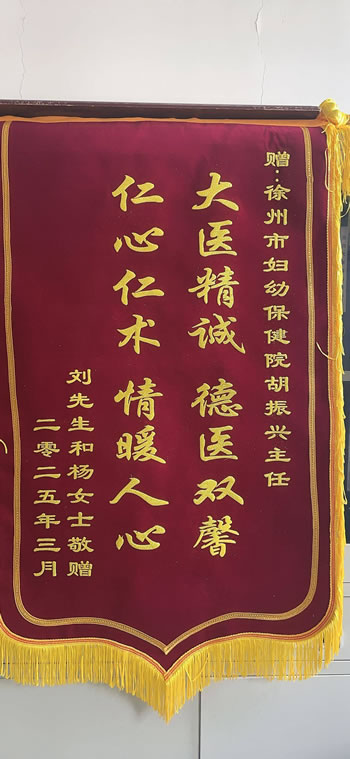 赠:徐州市妇幼保健院胡振兴主任
大医精诚 德医双馨
仁心仁术 情暖人心
刘先生和杨女士敬赠
二零二五年三月